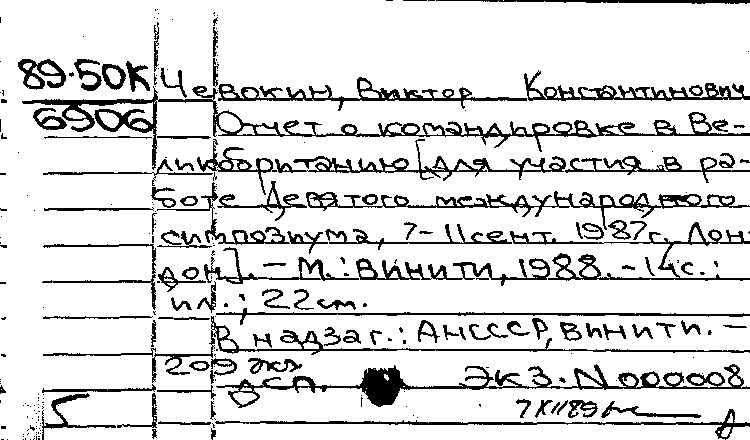 89-50К Чевокин, Виктор Константинович
6906 Отчет о командировке в Ве-
ликобританию [для участия в ра-
боте Девятого международного
симпозиума, 7-11 сент. 1987г. Лон-
дон]. - М.: ВИНИТИ, 1988. - 14с.:
ил.; 22 см.
В надзаг.: АН СССР, ВИНИТИ. -
209 экз
ДСП. Экз. N 000008
7 XII 89
5